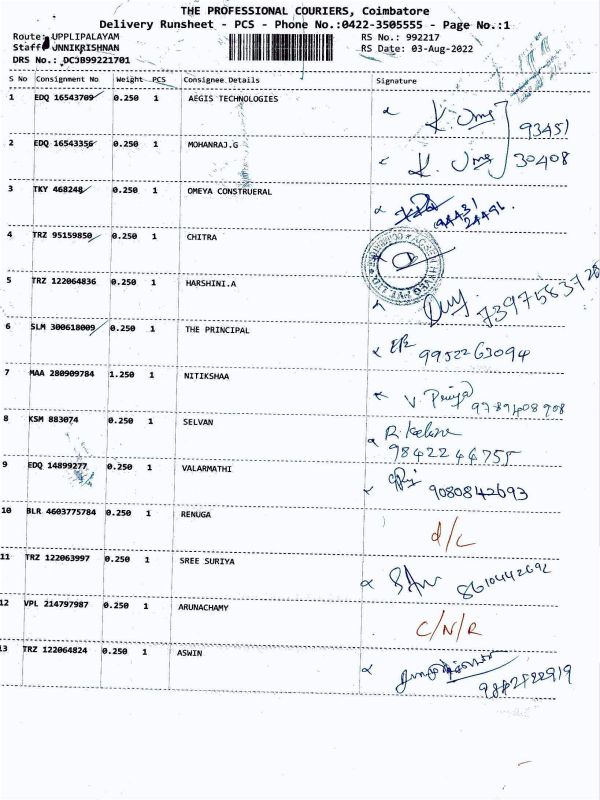 THE PROFESSIONAL COURIERS, Coimbatore
Delivery Runsheet - PCS - Phone No.:0422-3505555 - Page No.:1
Route: UPPLIPALAYAM RS No.: 992217
Staff: UNNIKRISHNAN RS Date: 03-Aug-2022
DRS No.: DCJB99221701
S No Consignment No Weight PCS Consignee Details Signature
1 EDQ 16543709 0.250 1 AEGIS TECHNOLOGIES K. Uma 93451
2 EDQ 16543356 0.250 1 MOHANRAJ.G K. Uma 30408
3 TKY 468248 0.250 1 OMEYA CONSTRUERAL 94431
24496
4 TRZ 95159850 0.250 1 CHITRA
5 TRZ 122064836 0.250 1 HARSHINI.A 7397583728
6 SLM 300618009 0.250 1 THE PRINCIPAL 9952263094
7 MAA 280909784 1.250 1 NITIKSHAA V. Priya 9789408908
8 KSM 883074 0.250 1 SELVAN
9842246755
9 EDQ 14899277 0.250 1 VALARMATHI 9080842693
10 BLR 4603775784 0.250 1 RENUGA d/L
11 TRZ 122063997 0.250 1 SREE SURIYA 8610442692
12 VPL 214797987 0.250 1 ARUNACHAMY C/N/R
13 TRZ 122064824 0.250 1 ASWIN